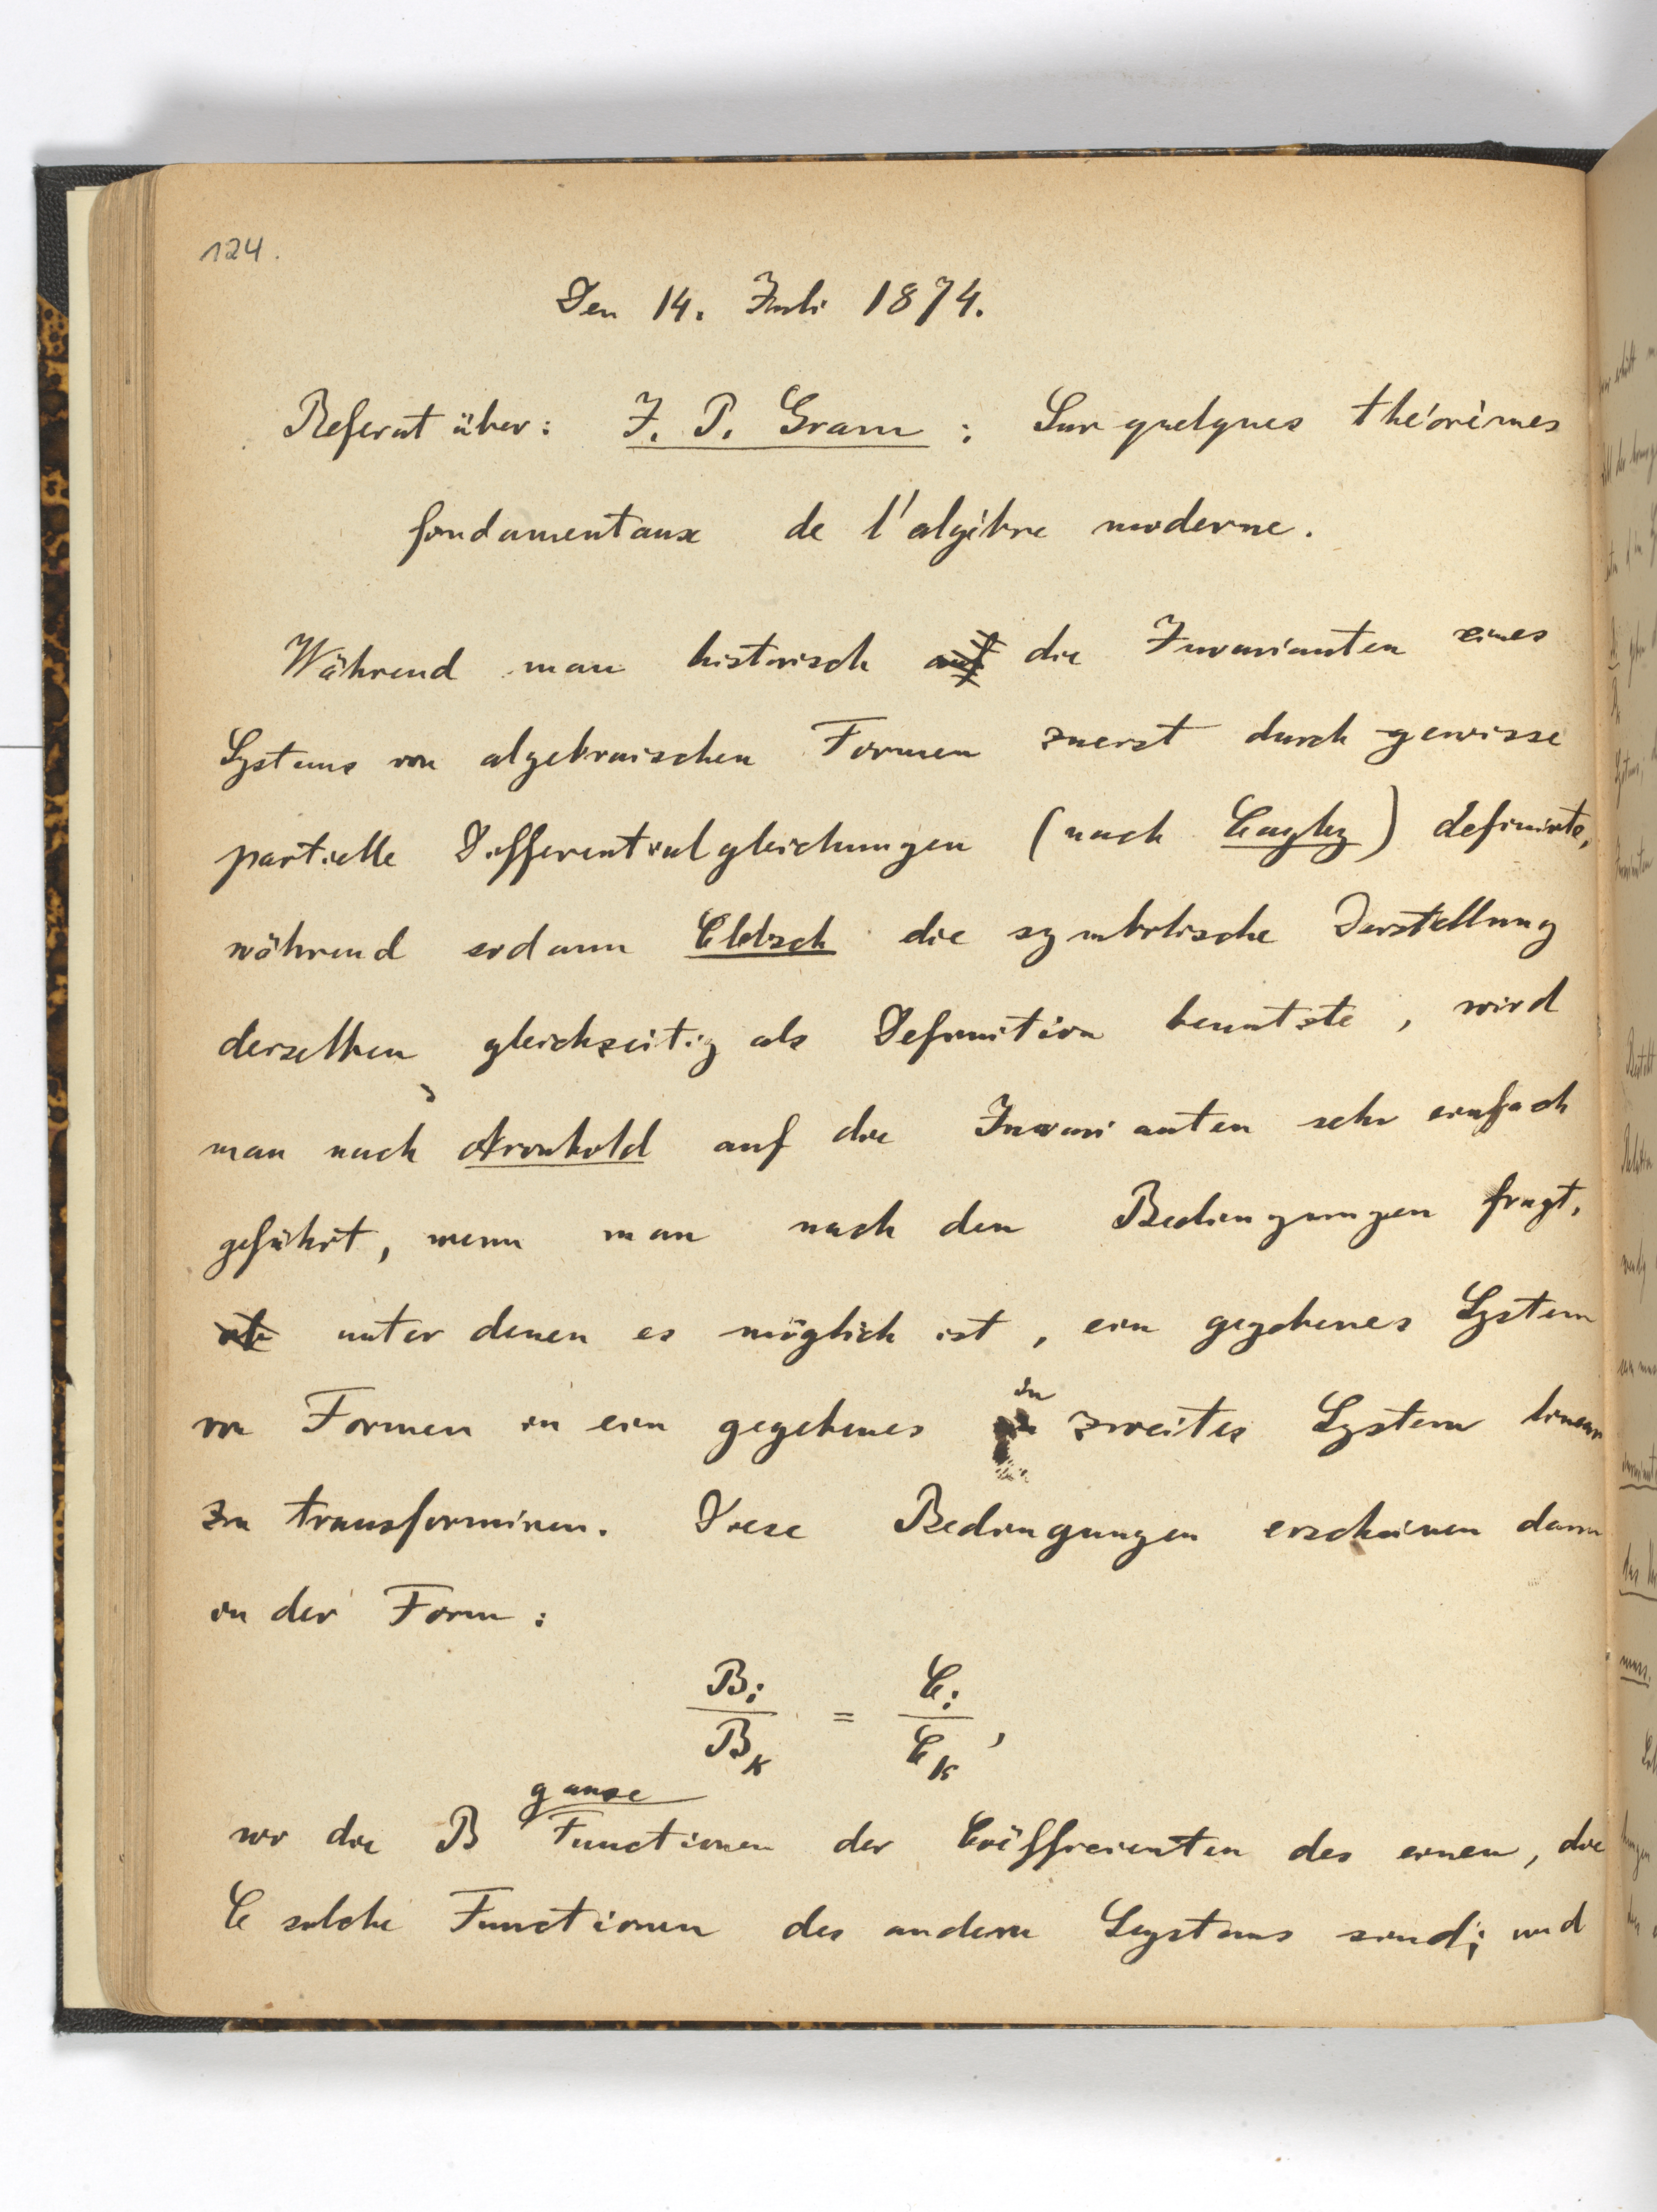 124.
Den 14. Juli 1874.
Referat über: J. P. Gram : Sur quelques théorèmes
fondamentaux de l'algèbre moderne.
Während man historisch auf die Invarianten eines
Systems von algebraischen Formen zuerst durch gewisse
partielle Differentialgleichungen (nach Cayley) definirte,
während sodann Clebsch die symbolische Darstellung
derselben gleichzeitig als Definition benutzte, wird
man nach Aronhold auf die Invarianten sehr einfach
geführt, wenn man nach den Bedingungen fragt,
ob unter denen es möglich ist, ein gegebenes System
von Formen in ein gegebenes in zweites System linear
zu transformiren. Diese Bedingungen erscheinen dann
in der Form:
B_i / B_k = C_i / C_k ,
ganze
wo die B Functionen der Coëfficienten des einen, die
C solche Functionen des andern Systems sind; und